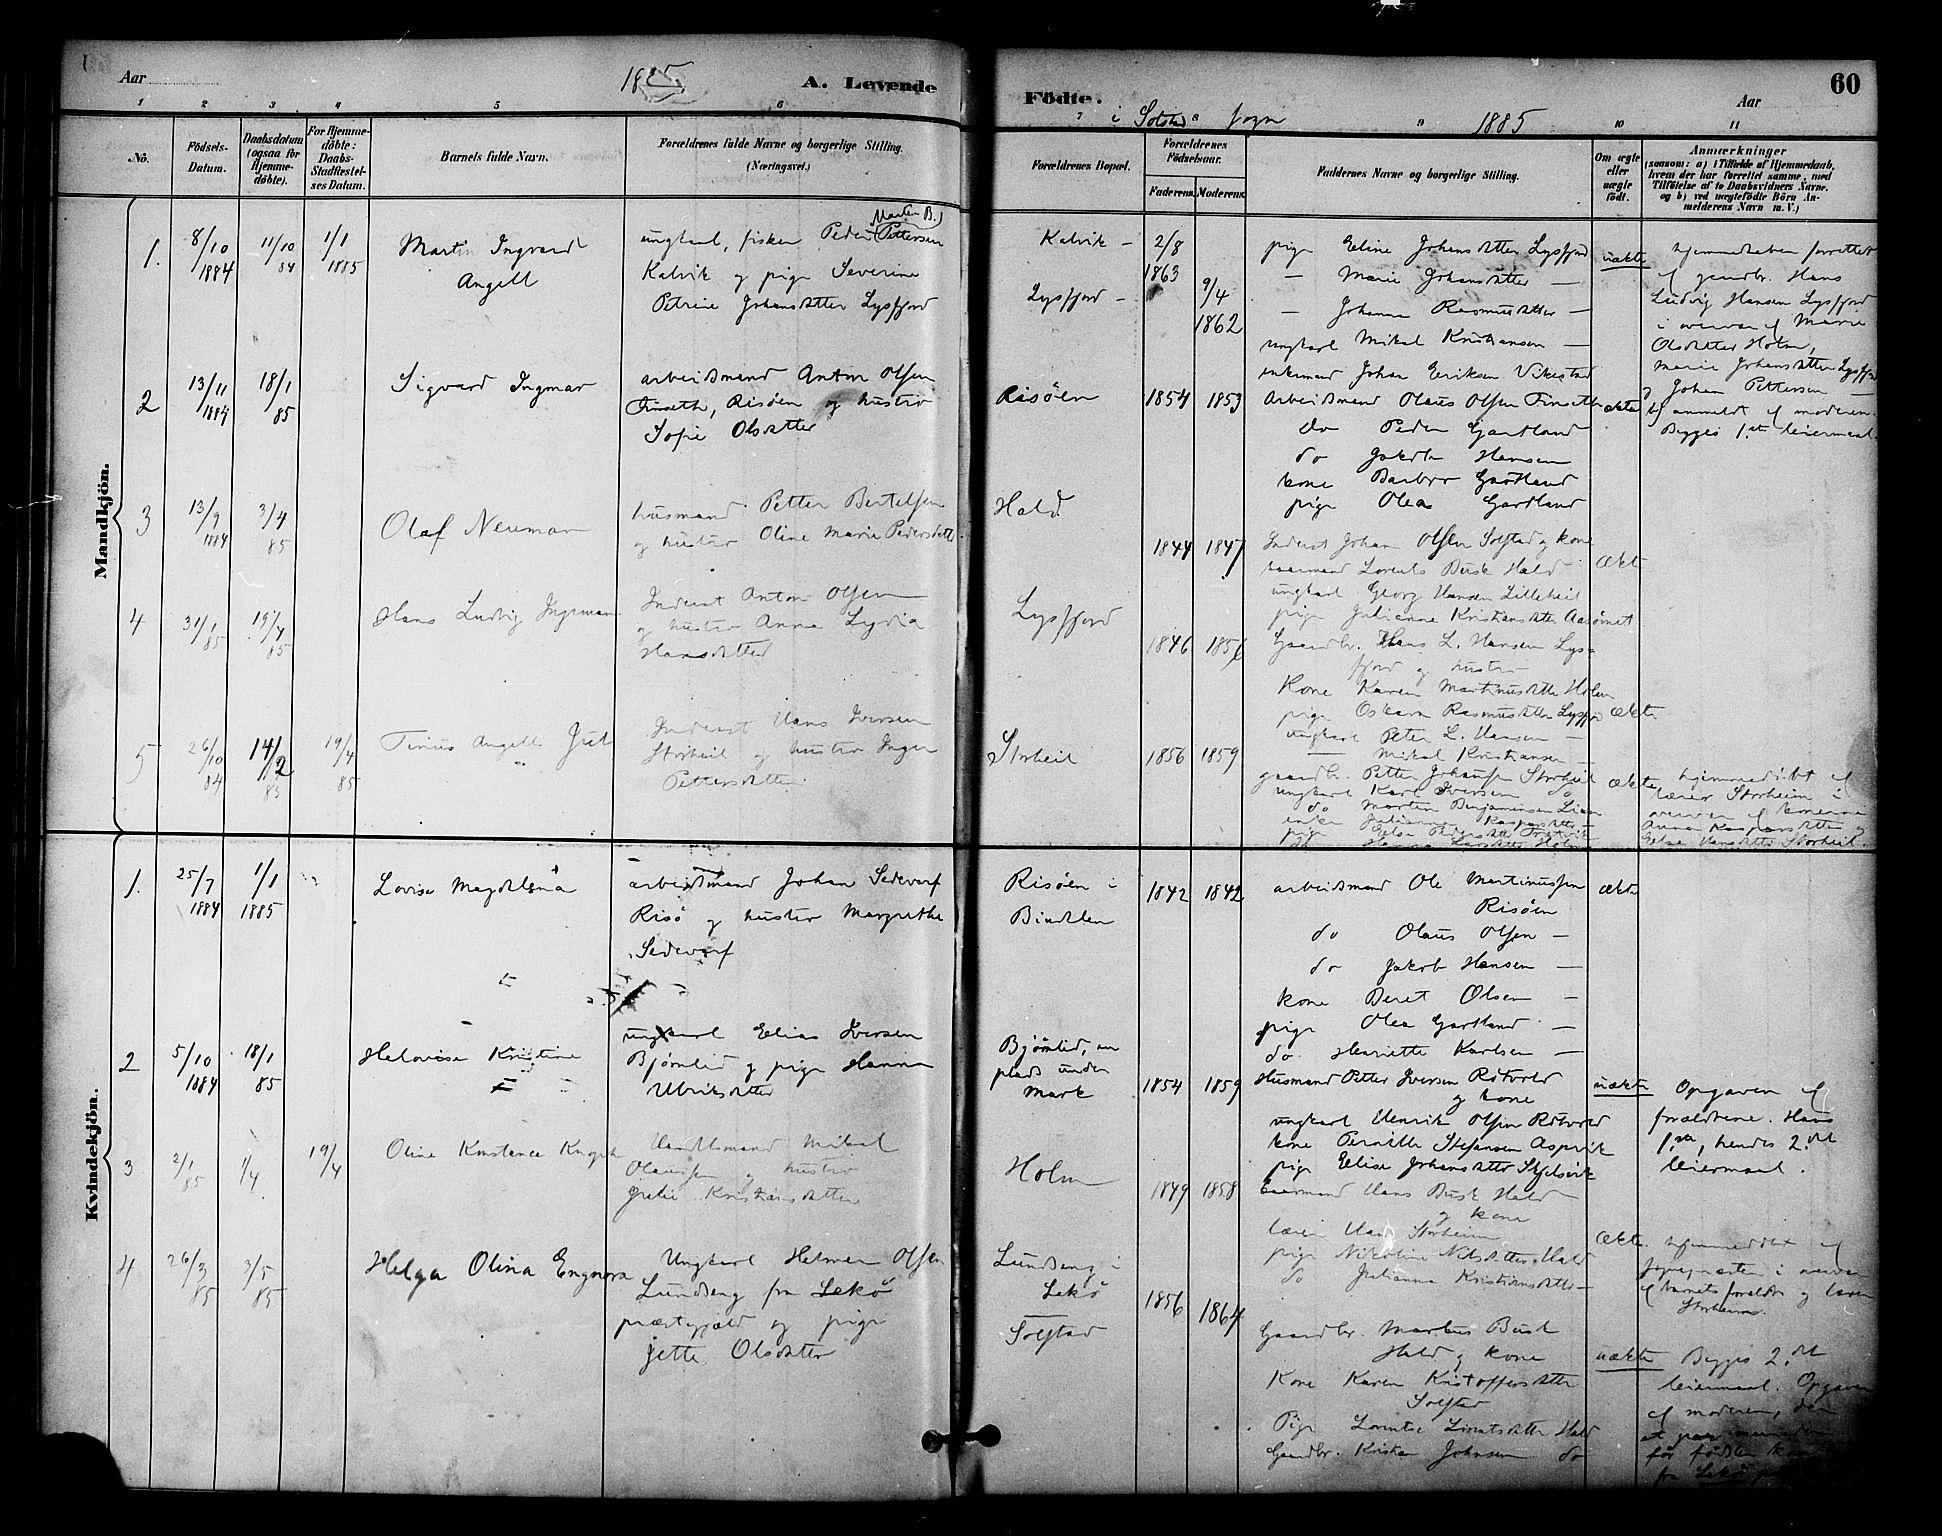 Aar
1885
A. Levende
Födte.
i Solstad Sogn
1885
Aar
60
1 2 3 4 5 6
7 8 9 10 11
No.
Födsels-
Datum.
Daabsdatum
(ogsaa for
Hjemme-
döbte).
For Hjemme-
döbte:
Daabs-
Stadfæstel-
ses Datum.
Barnets fulde Navn.
Forældrenes fulde Navne og borgerlige Stilling.
(Næringsvei.)
Forældrenes Bopæl.
Forældrenes
Födselsaar.
Faderens.
Moderens.
Faddernes Navne og borgerlige Stilling.
Om ægte
eller
uægte
født.
Anmærkninger
(saasom: a) i Tilfælde af Hjemmedaab,
hvem der har forrettet samme, med
Tilföielse af to Daabsvidners Navne,
og b) ved uægtefödte Börn An-
melderens Navn m. V.)
Mandkjön.
1.
8/10
1884
11/10
84
1/1
1885
Martin Ingvard
Angell
Martin B.)
ungkarl, fisker Peder (Pettersen
Kalvik og pige Severine
Petrine Johansdatter Lysfjord
Kalvik -
Lysfjord -
2/8
1863
9/4
1862
pige Eline Johansdatter Lysfjord
— Marie Johansdatter —
— Johanna Rasmusdatter —
ungkarl Mikal Kristiansen —
enkemand Johan Eriksen Vikestad
uækte
hjemmedaaben forrettet
af gaardbr. Hans
Ludvig Hansen Lysfjord
i overvær af Marie
Olsdatter Holm,
Marie Johansdatter Lysfjord
og Johan Pettersen —
b) anmeldt af moderen.
Begges 1.ste leiermaal.
2
13/11
1884
18/1
85
Sigvard Ingmar
arbeidsmand Anton Olsen
Finseth, Risöen og hustru
Sofie Olsdatter
Risöen
1854 1853
Arbeidsmand Olaus Olsen Finseth
do Peder Gartland
do Jakob Hansen
kone Barbro Gartland
pige Olea Gartland
ækte
3
13/9
1884
3/4
85
Olaf Neumar
husmand Petter Bertelsen
og hustru Oline Marie Pedersdatter
Hald
1844 1847
Inderst Johan Olsen Solstad og kone
Lorents Busk Hald
ungkarl Georg Hansen Lilleheil
pige Julianne Kristiansdatter
ækte
4
31/1
85
19/4
85
Hans Ludvig Ingeman
Inderst Anton Olsen
og hustru Anna Lydia
Hansdatter
Lysfjord
1846 1856
Gaardbr. Hans L. Hansen Lys-
fjord og hustru
Kone Karen Martinusdatter Holm
pige Oskara Rasmusdatter Lysfjord
ungkarl Peter L. Hansen —
— Mikal Kristiansen —
ækte
5
26/10
84
14/2
85
19/4
85
Tinius Angell Juel
Inderst Hans Iversen
Storheil og hustru Inger
Pettersdatter
Storheil
1856 1859
gaardbr. Petter Johansen Storheil
ungkarl Karl Iversen do
do Martin Benjaminsen
enke Julianna Kaspersdatter
pige Elise Pedersdatter
ækte
hjemmedöbt af
lærer Storheim i
overvær af konerne
Anna Kaspersdatter og
Elise Hansdatter Storheil.
Kvindekjön.
1.
25/7
1884
1/1
1885
Lovise Magdalena
arbeidsmand Johan Sedevarf
Risö og hustru Margrethe
Sedevarf
Risöen i
Bindalen
1842 1842
arbeidsmand Ole Martinussen
Risöen
do Olaus Olsen —
do Jakob Hansen —
kone Beret Olsen —
pige Olea Gartland —
do. Henriette Karlsen —
ækte
2
5/10
1884
18/1
85
Helovise Kristine
ungkarl Elias Iversen
Bjørnlid og pige Hanna
Ulriksdatter
Bjørnlid, en
plads under
Mark
1854 1859
Husmand Petter Iversen Rötvold
og kone
ungkarl Henrik Olsen Rötvold
kone Pernille Stefansen
pige Elise Johansdatter
uækte
Opgaven af
forældrene. Hans
1.ste, hendes 2.det
leiermaal.
3
2/1
85
1/4
19/4
Oline Konstance
Handelsmand Mikal
Olaussen og hustru
Julie Kristiansdatter
Holm
1849 1858
Hans Busk Hald
og kone
lærer Hans Storheim
pige Nikoline Nilsdatter Hald
do Julianna Kristiansdatter —
ækte
hjemmedöbt af
i overvær
af barnets forældre og lærer
Storheim.
4
26/3
85
3/5
85
Helga Olina Engnora
Ungkarl Helmer Olsen
Lundseng fra Lekö
præstegjæld og pige
Jette Olsdatter
Lundseng i
Lekö
Solstad
1856 1864
Gaardbr. Markus Busk
Hald og kone
Kone Karen Kristoffersdatter
Solstad
Pige Lorentse Hald
Gaardbr. Kristen Johnsen do
uækte
Begges 2.det
leiermaal. Opgaven
af moderen, der
et par maaneder
før fødslen kom
fra Lekö